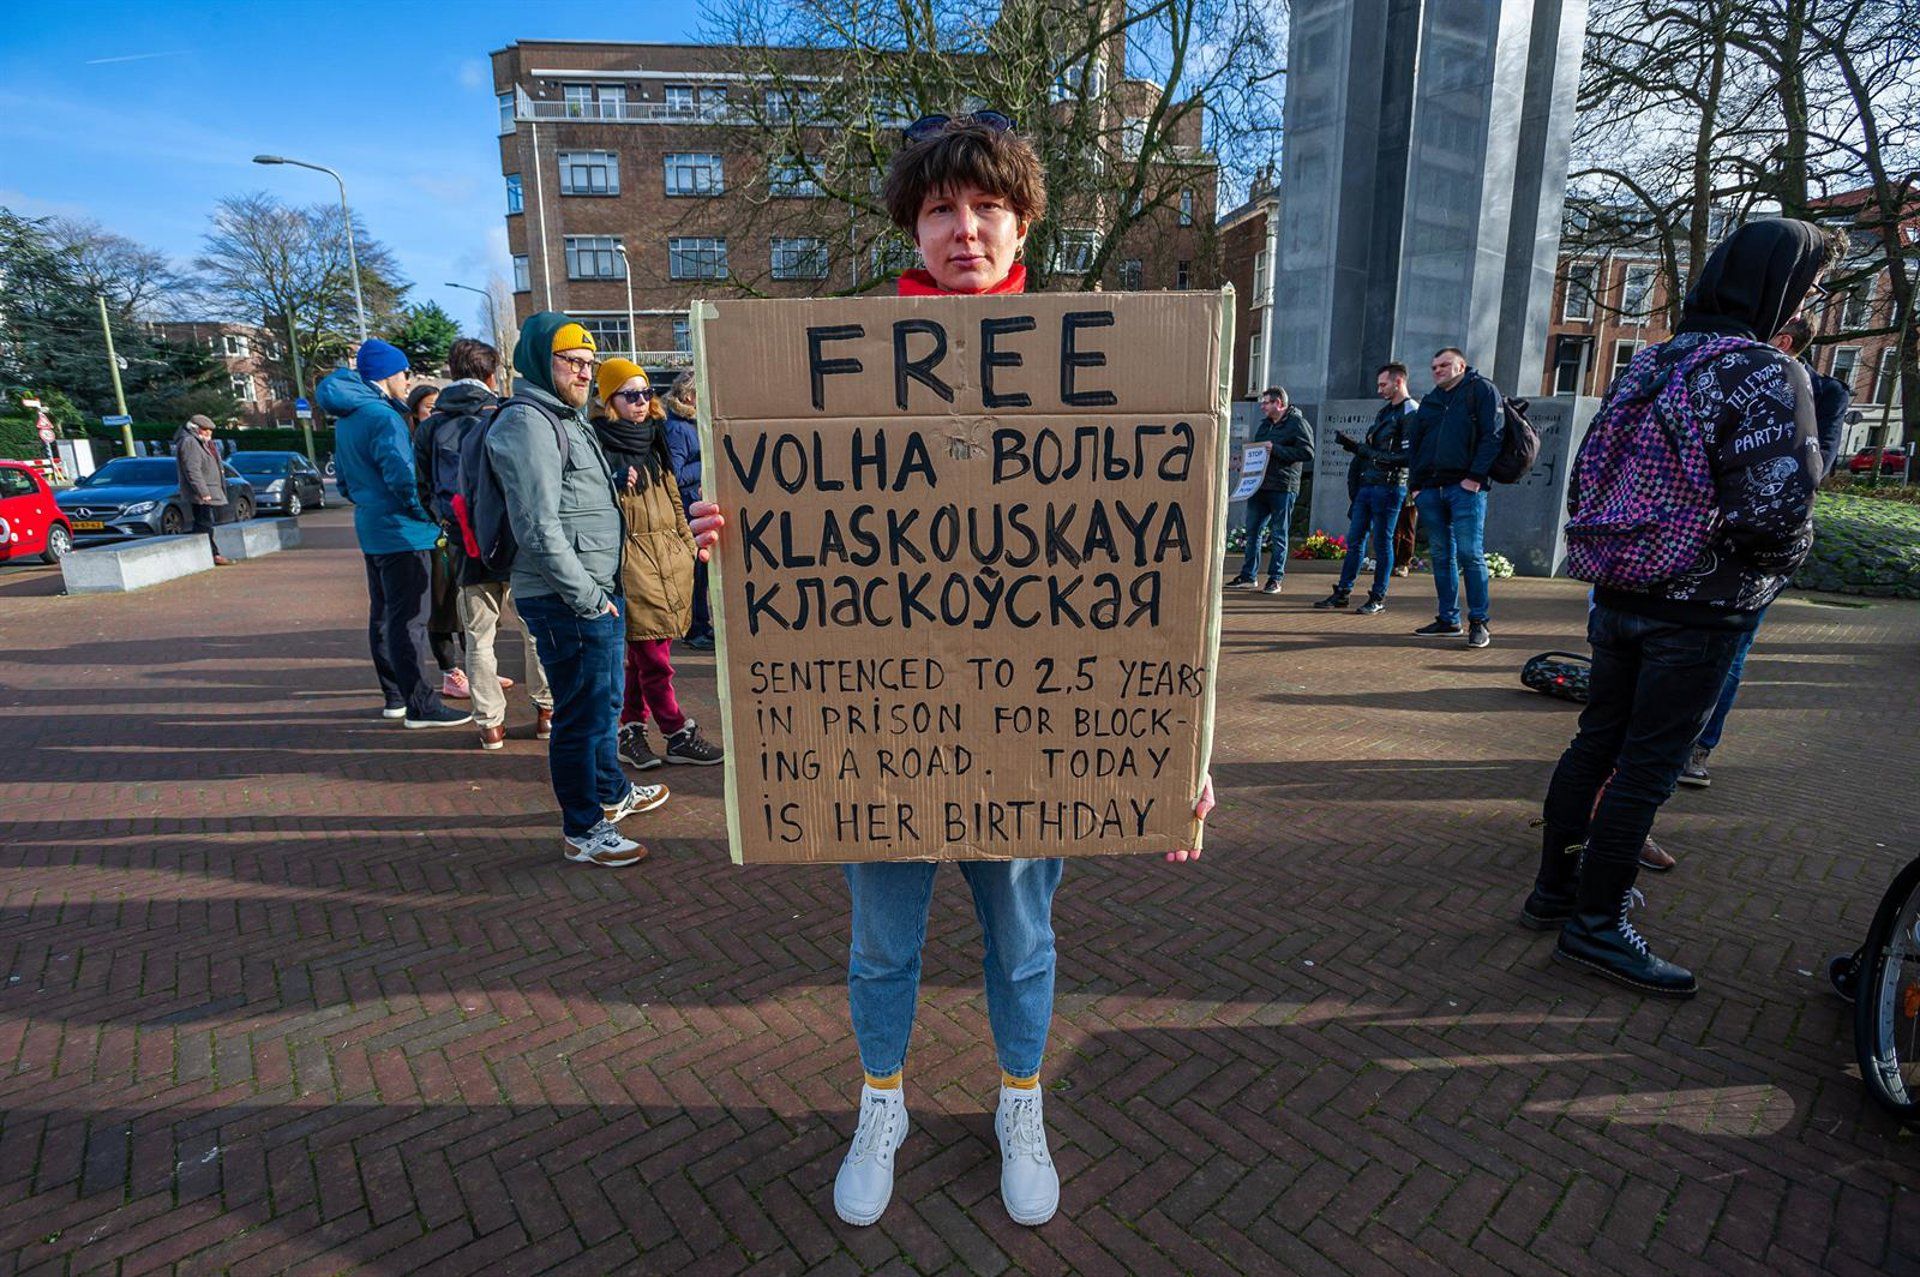 FREE
VOLHA ВОЛЬГА
KLASKOUSKAYA
КЛАСКОЎСКАЯ
SENTENCED TO 2,5 YEARS
IN PRISON FOR BLOCK-
ING A ROAD. TODAY
IS HER BIRTHDAY
STOP
STOP
PARTY